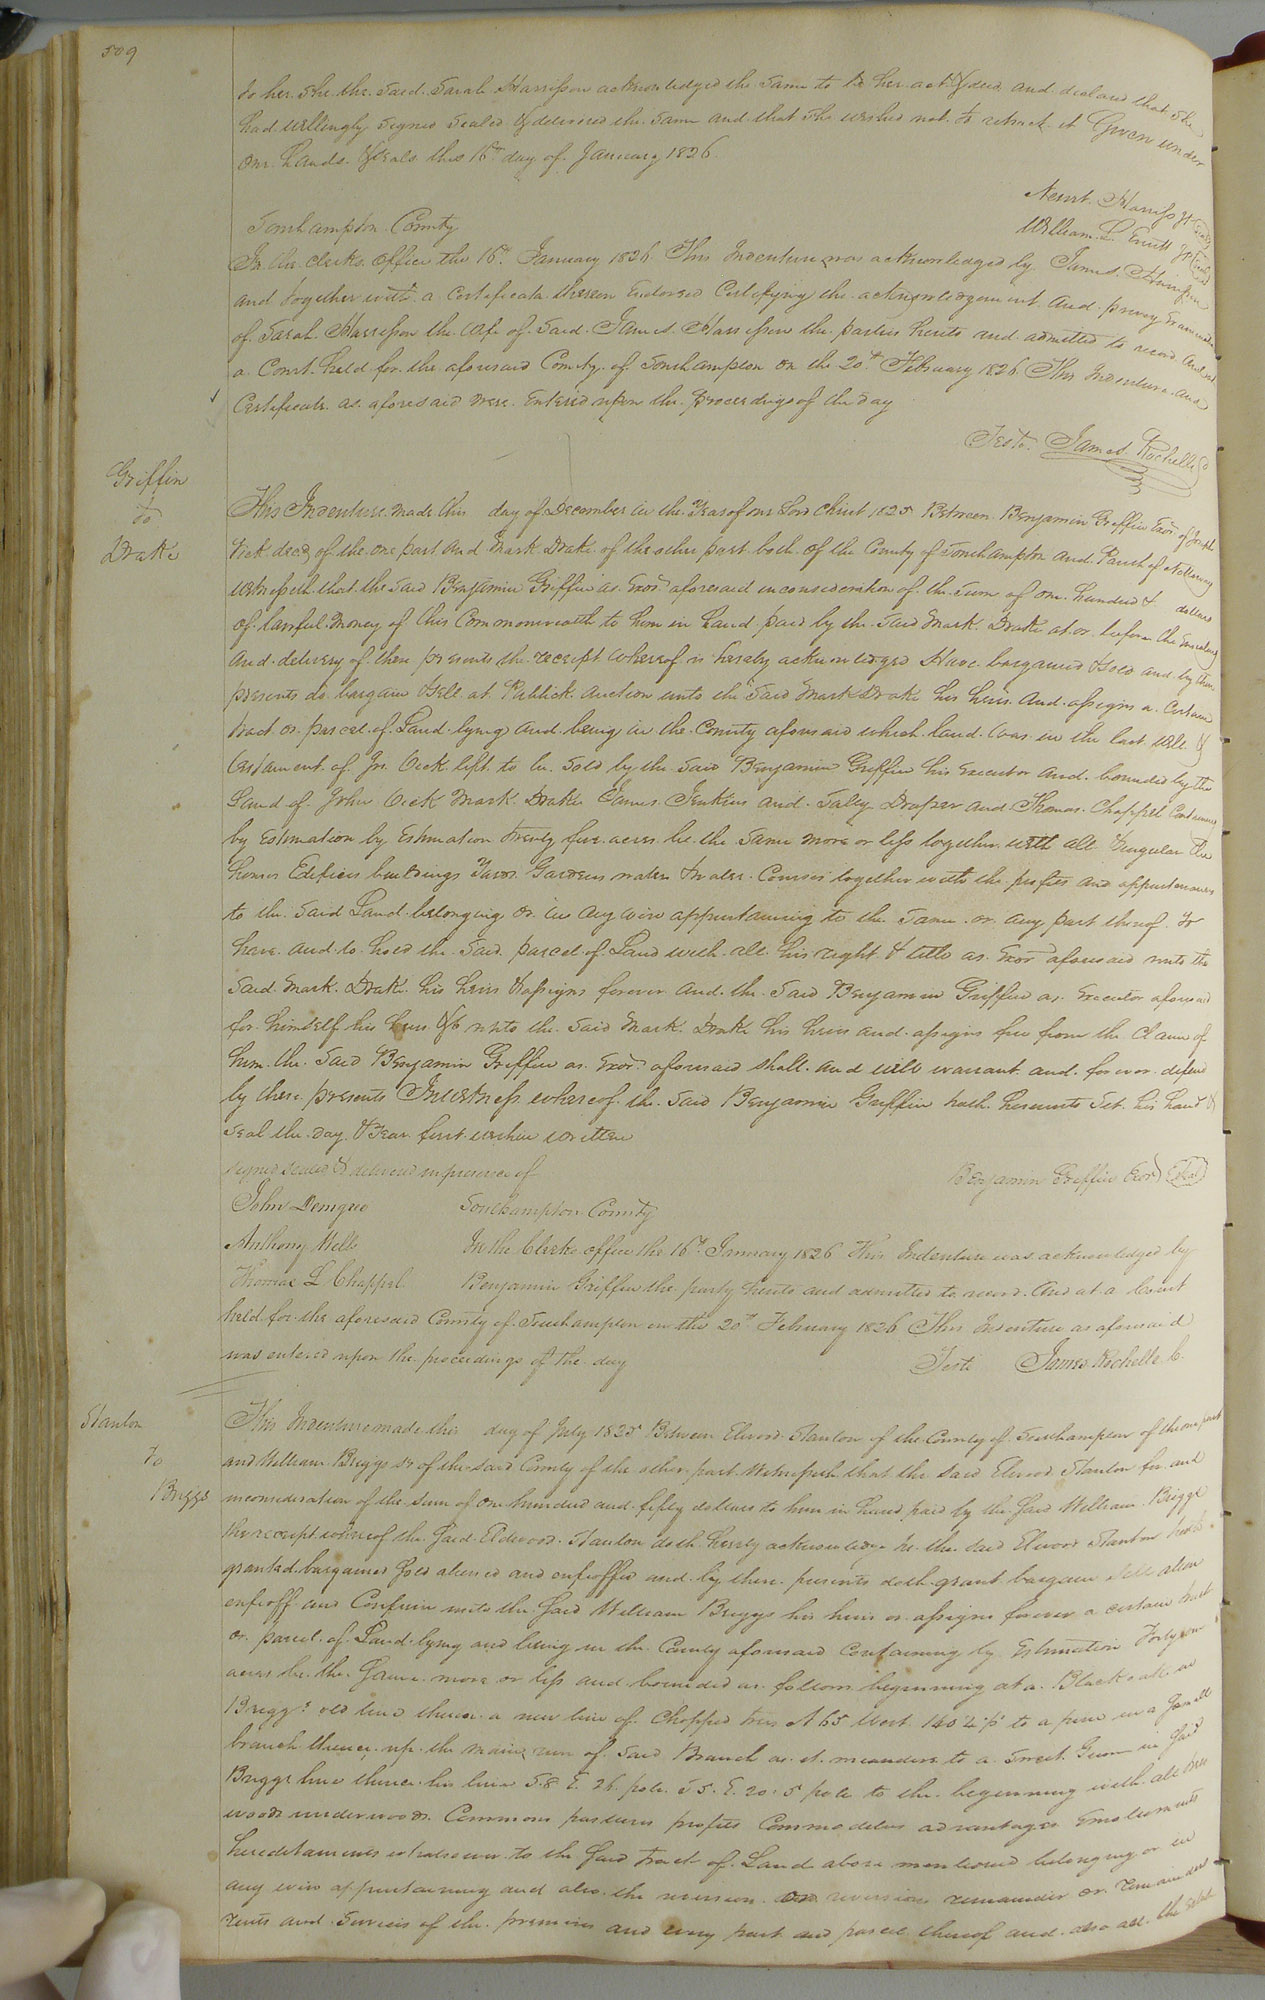 509
to her she the said Sarah Harrisson acknowledged the same to be her act & deed and declared that she
had willingly signed sealed & delivered the same and that she wished not to retract it Given under
our hands & seals this 16th day of January 1826
Newit Harriss JP (Seal)
William E. JP (Seal)
Southampton County
In the clerks office the 16th January 1826 This Indenture was acknowledged by James Harrisson
and together with a Certificate thereon Endorsed Certifying the acknowledgement and privy Examination
of Sarah Harrisson the wife of said James Harrisson the parties hereto and admitted to record And at
a Court held for the aforesaid County of Southampton on the 20th February 1826 This Indenture and
Certificate as aforesaid were Entered upon the proceedings of the day
Teste James Rochelle
Griffin
to
Drake
This Indenture made this day of December in the Year of our Lord Christ 1825 Between Benjamin Griffin Exor of
Vick decd of the one part and Mark Drake of the other part both of the County of Southampton and Parish of Nottoway
Witnesseth that the said Benjamin Griffin as Exor aforesaid in consideration of the sum of one hundred & dollars
of lawful money of this Commonwealth to him in hand paid by the said Mark Drake at or before the Ensealing
and delivery of these presents the receipt whereof is hereby acknowledged Have bargained & sold and by these
presents do bargain & sell at Publick auction unto the said Mark Drake his heirs and assigns a Certain
tract or parcel of Land lying and being in the County aforesaid which land was in the last Will &
testament of Vick left to be sold by the said Benjamin Griffin his Executor and bounded by the
Land of John Vick Mark Drake James Jenkins and Saley Draper and Thomas Chappel Containing
by Estimation by Estimation twenty five acres be the same more or less together with all & singular the
houses Edifices buildings Yards Gardens waters & water Courses together with the profits and appurtenances
to the said Land belonging or in any wise appurtaining to the same or any part thereof to
have and to hold the said parcel of Land with all his right & title as Exor aforesaid unto the
said Mark Drake his heirs & assigns forever and the said Benjamin Griffin as Executor aforesaid
for himself his heirs &c unto the said Mark Drake his heirs and assigns free from the Claim of
him the said Benjamin Griffin as Exor aforesaid shall and will warrant and for ever defend
by these presents In witness whereof the said Benjamin Griffin hath hereunto set his hand &
seal the day & Year first within written
signed sealed & delivered in presence of
Benjamin Griffin Exor (Seal)
John Demgree Southampton County
Anthony Wells In the Clerks office the 16th January 1826 This Indenture was acknowledged by
Thomas L Chappel Benjamin Griffin the party hereto and admitted to record And at a Court
held for the aforesaid County of Southampton on the 20th February 1826 This Indenture as aforesaid
was entered upon the proceedings of the day Teste James Rochelle C.
Stanton
To
Briggs
This Indenture made this day of July 1825 Between Elwood Stanton of the County of Southampton of the one part
and William Briggs Sr of the said County of the other part Witnesseth that the said Elwood Stanton for and
inconsideration of the sum of one hundred and fifty dollars to him in hand paid by the said William Briggs
the receipt whereof the said Eldwood Stanton doth hereby acknowledge he the said Elwood Stanton hath
granted bargained sold aliened and enfeoffed and by these presents doth grant bargain sell alien
enfeoff and Confirm unto the said William Briggs his heirs or assigns forever a certain tract
or parcel of Land lying and being in the County aforesaid Containing by Estimation Forty one
acres be the same more or less and bounded as follows beginning at a Black oak in
Briggs old line thence a new line of Chopped trees N 65 West 140 p to a pine in a small
branch thence up the main run of said Branch as it meanders to a Sweet Gum in said
Briggs line thence his line S. 8 E. 26 pole S 5. E. 20.5 pole to the beginning with all
woods underwoods Commons pastures profits Commodities advantages Emoluments
hereditaments whatsoever to the said tract of Land above mentioned belonging or in
any wise appurtaining and also the reversion or reversions remainder or remainders
rents and Services of the premises and every part and parcel thereof and also all the